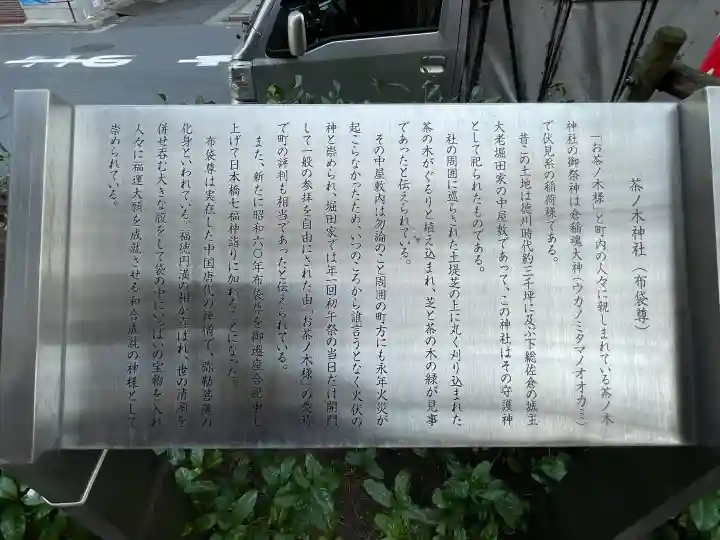 茶ノ木神社（布袋尊）
「お茶ノ木様」と町内の人々に親しまれている茶ノ木
神社の御祭神は倉稲魂大神（ウカノミタマノオオカミ）
で伏見系の稲荷様である。
昔この土地は徳川時代約三千坪に及ぶ下総佐倉の城主
大老堀田家の中屋敷であって、この神社はその守護神
として祀られたものである。
社の周囲に巡らされた土堤芝の上に丸く刈り込まれた
茶の木がぐるりと植え込まれ、芝と茶の木の緑が見事
であったと伝えられている。
その中屋敷内は勿論のこと周囲の町方にも永年火災が
起こらなかったため、いつのころから誰言うとなく火伏の
神と崇められ、堀田家では年一回初午祭の当日だけ開門
して一般の参拝を自由にされた由「お茶ノ木様」の愛称
で町の評判も相当であったと伝えられている。
また、新たに昭和六〇年布袋尊を御遷座合祀申し
上げて日本橋七福神詣りに加わることになった。
布袋尊は実在した中国唐代の禅僧で、弥勒菩薩の
化身といわれている。福徳円満の相が喜ばれ、世の清濁を
併せ呑む大きな腹をして袋の中にいっぱいの宝物を入れ
人々に福運大願を成就させる和合成就の神様として
崇められている。